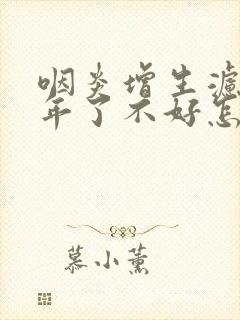 咽炎增生滤
年了不好怎
慕小薰